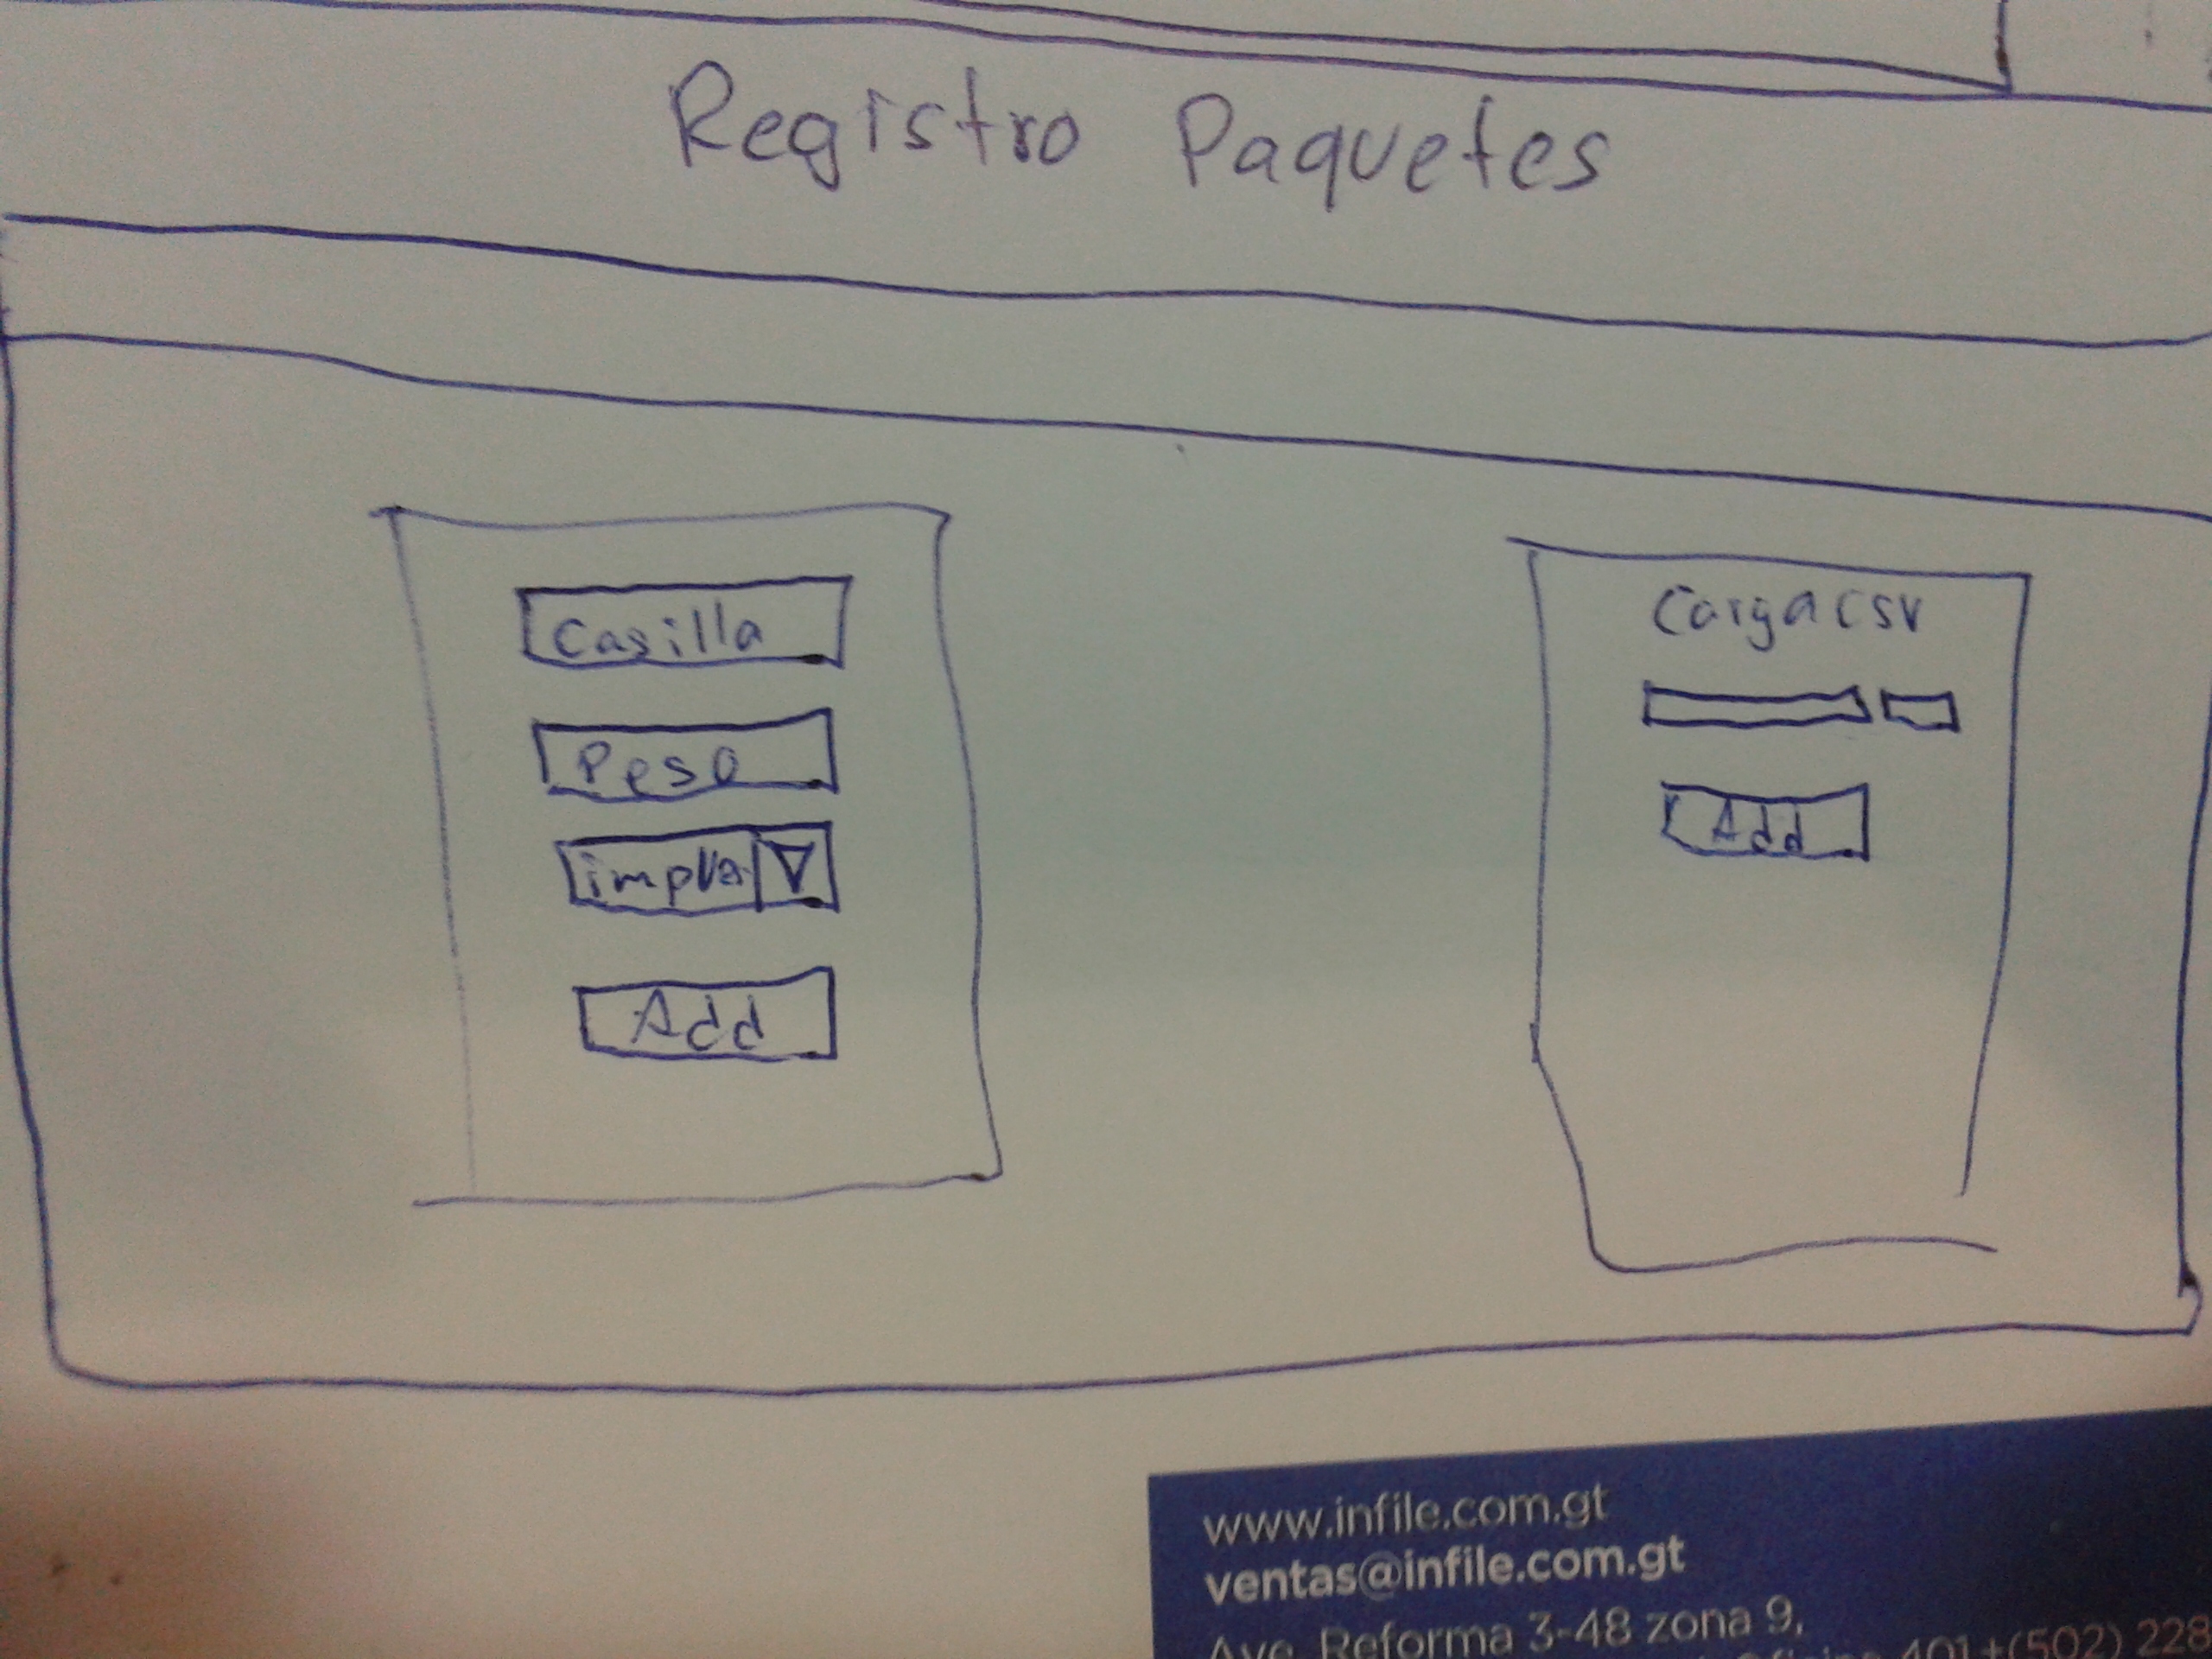 Registro Paquetes
Casilla
Peso
Add
Carga CSV
Add
www.infile.com.gt
ventas@infile.com.gt
Ave. Reforma 3-48 zona 9,
401 +(502) 228